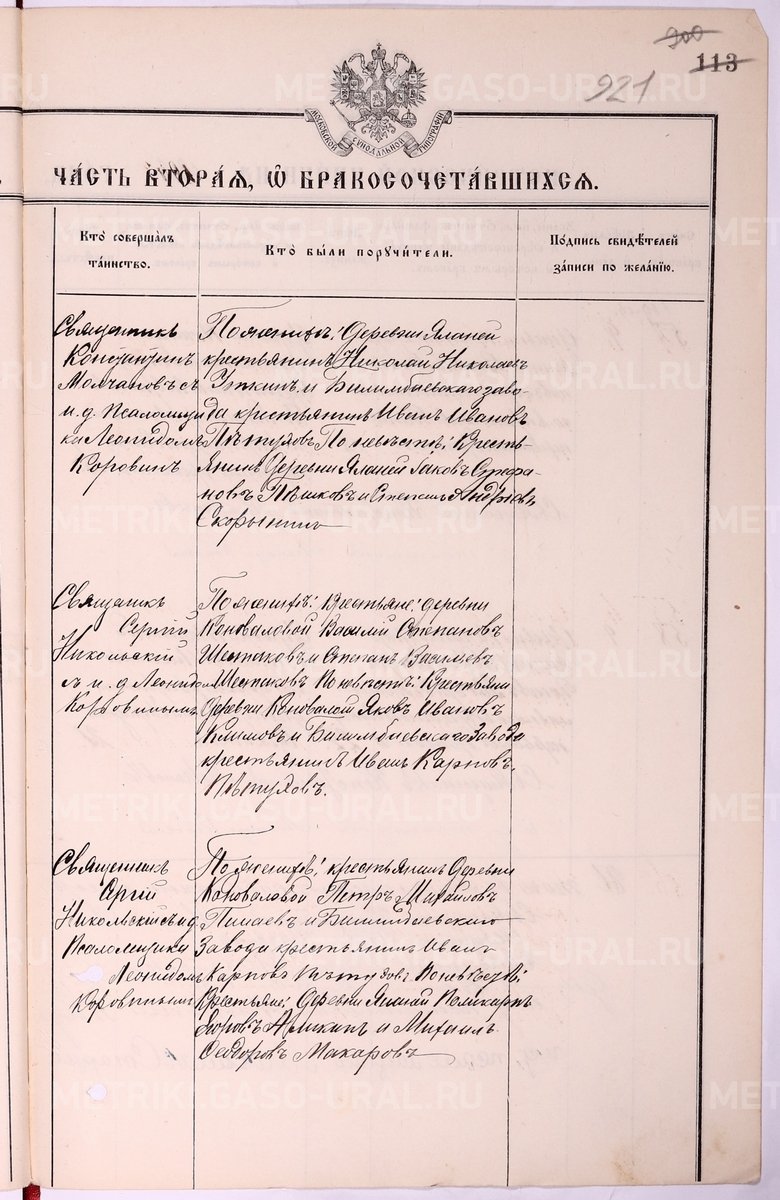 900
113
921
МОСКОВСКОЙ СѴНОДАЛЬНОЙ ТИПОГРАФІИ
ЧА́СТЬ ВТОРА́Я, Ѡ БРАКОСОЧЕТА́ВШИХСЯ.
Кто̀ соверша́лъ
та́инство.
Кто̀ бы́ли порꙋчи́тели.
По́дпись свидѣ́телей
за́писи по жела́нїю.
Священникъ
Константинъ
Молчановъ съ
и. д. Псаломщи
ка Леонидомъ
Коровин
По женихѣ: деревни Яланей
крестьянинъ Николай Николаевъ
Уткинъ и Билимбаевскаго заво
да крестьянинъ Иванъ Ивановъ
Пѣтуховъ По невѣстѣ: Кресть
янинъ Деревни Яланей Іаковъ Стефа
новъ Пѣшковъ и Степанъ Андреевъ
Скорынинъ
Священикъ
Сергій
Никольскій
и. д Леонид
Коровинымъ
По женихѣ: Крестьяне: деревни
Коноваловой Василій Степановъ
Шестаковъ и Степанъ Василіевъ
Шестаковъ По невѣстѣ: Крестьяни
Деревни Коновалой Яковъ Ивановъ
Климовъ и Билимбаевскаго Завода
крестьянинъ Иванъ Карповъ
Пѣтуховъ.
Священникъ
Сергій
Никольскій съ и д
Псаломщика
Леонидомъ
Коровинымъ
По женихѣ: крестьянинъ Деревни
Коноваловой Петръ Михайловъ
и Билимбаевскаго
Завода крестьянинъ Иванъ
Карповъ Пѣтуховъ По невѣстѣ:
Крестьяне: Деревни Яланей Поликарпъ
Егоровъ Аликинъ и Михаилъ
Феодоровъ Макаровъ
METRIKI.GASO-URAL.RU